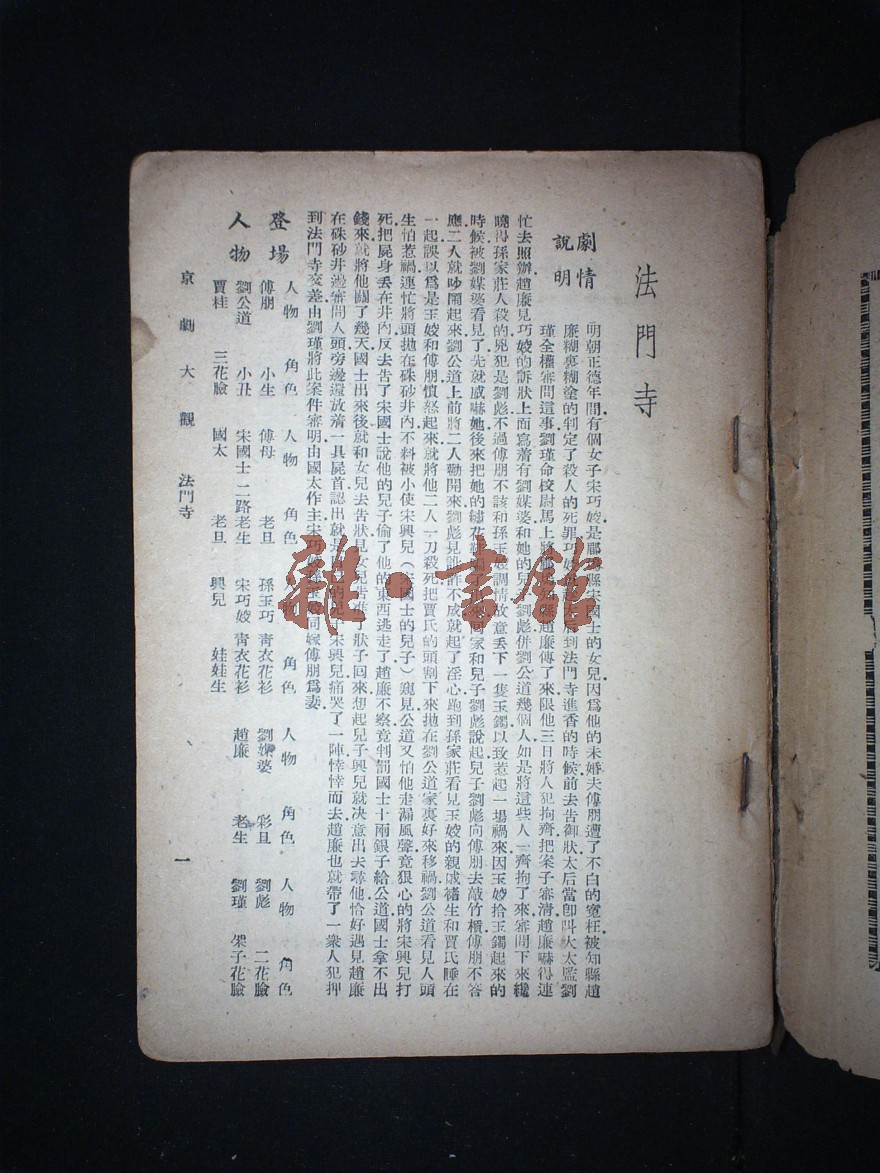 法門寺
劇情
說明
明朝正德年間有個女子宋巧姣是郿鄔縣宋國士的女兒因爲他的未婚夫傅朋遭了不白的寃枉被知縣趙
廉糊裏糊塗的判定了殺人的死罪巧姣到法門寺進香的時候前去告御狀太后當卽叫大太監劉
瑾全權審問這事劉瑾命校尉馬上將趙廉傳了來限他三日將人犯拘齊把案子審淸趙廉嚇得連
忙去照辦趙廉見巧姣的訴狀上面寫着有劉媒婆和她的兒劉彪併劉公道幾個人如是將這些人一齊拘了來審問下來纔
曉得孫家莊人殺的兇犯是劉彪不過傅朋不該和孫玉姣調情故意丟下一隻玉鐲以致惹起一場禍來因玉姣拾玉鐲起來的
時候被劉媒婆看見了先就威嚇她後來把她的繡在家和兒子劉彪說起兒子劉彪向傅朋去敲竹槓傅朋不答
應二人就吵鬧起來劉公道上前將二人勸開來劉彪見訛詐不成就起了淫心跑到孫家莊看見玉姣的親戚褚生和賈氏睡在
一起誤以爲是玉姣和傅朋憤怒起來就將他二人一刀殺死把賈氏的頭割下來拋在劉公道家裏好來移禍劉公道看見人頭
生怕惹禍連忙將頭拋在硃砂井內不料被小使宋興兒(國士的兒子)窺見公道又怕他走漏風聲竟狠心的將宋興兒打
死把屍身丟在井內反去告了宋國士說他的兒子偷了他的東西逃走了趙廉不察竟判罰國士十兩銀子給公道國士拿不出
錢來就將他關了幾天國士出來後就和女兒去告狀見女兒告准了狀子回來想起兒子興兒就决意出去尋他恰好遇見趙廉
在硃砂井邊審問人頭旁邊還放着一具屍首認出就是兒子宋興兒痛哭了一陣悻悻而去趙廉也就帶了一衆人犯押
到法門寺交差由劉瑾將此案件審明由國太作主宋巧姣孫玉姣同嫁傅朋爲妻
登場
人物
人物 角色 人物 角色 人物 角色 人物 角色 人物 角色
傅朋 小生 傅母 老旦 孫玉巧 靑衣花衫 劉媒婆 彩旦 劉彪 二花臉
劉公道 小丑 宋國士 二路老生 宋巧姣 靑衣花衫 趙廉 老生 劉瑾 架子花臉
賈桂 三花臉 國太 老旦 興兒 娃娃生
京劇大觀 法門寺 一
雜·書館